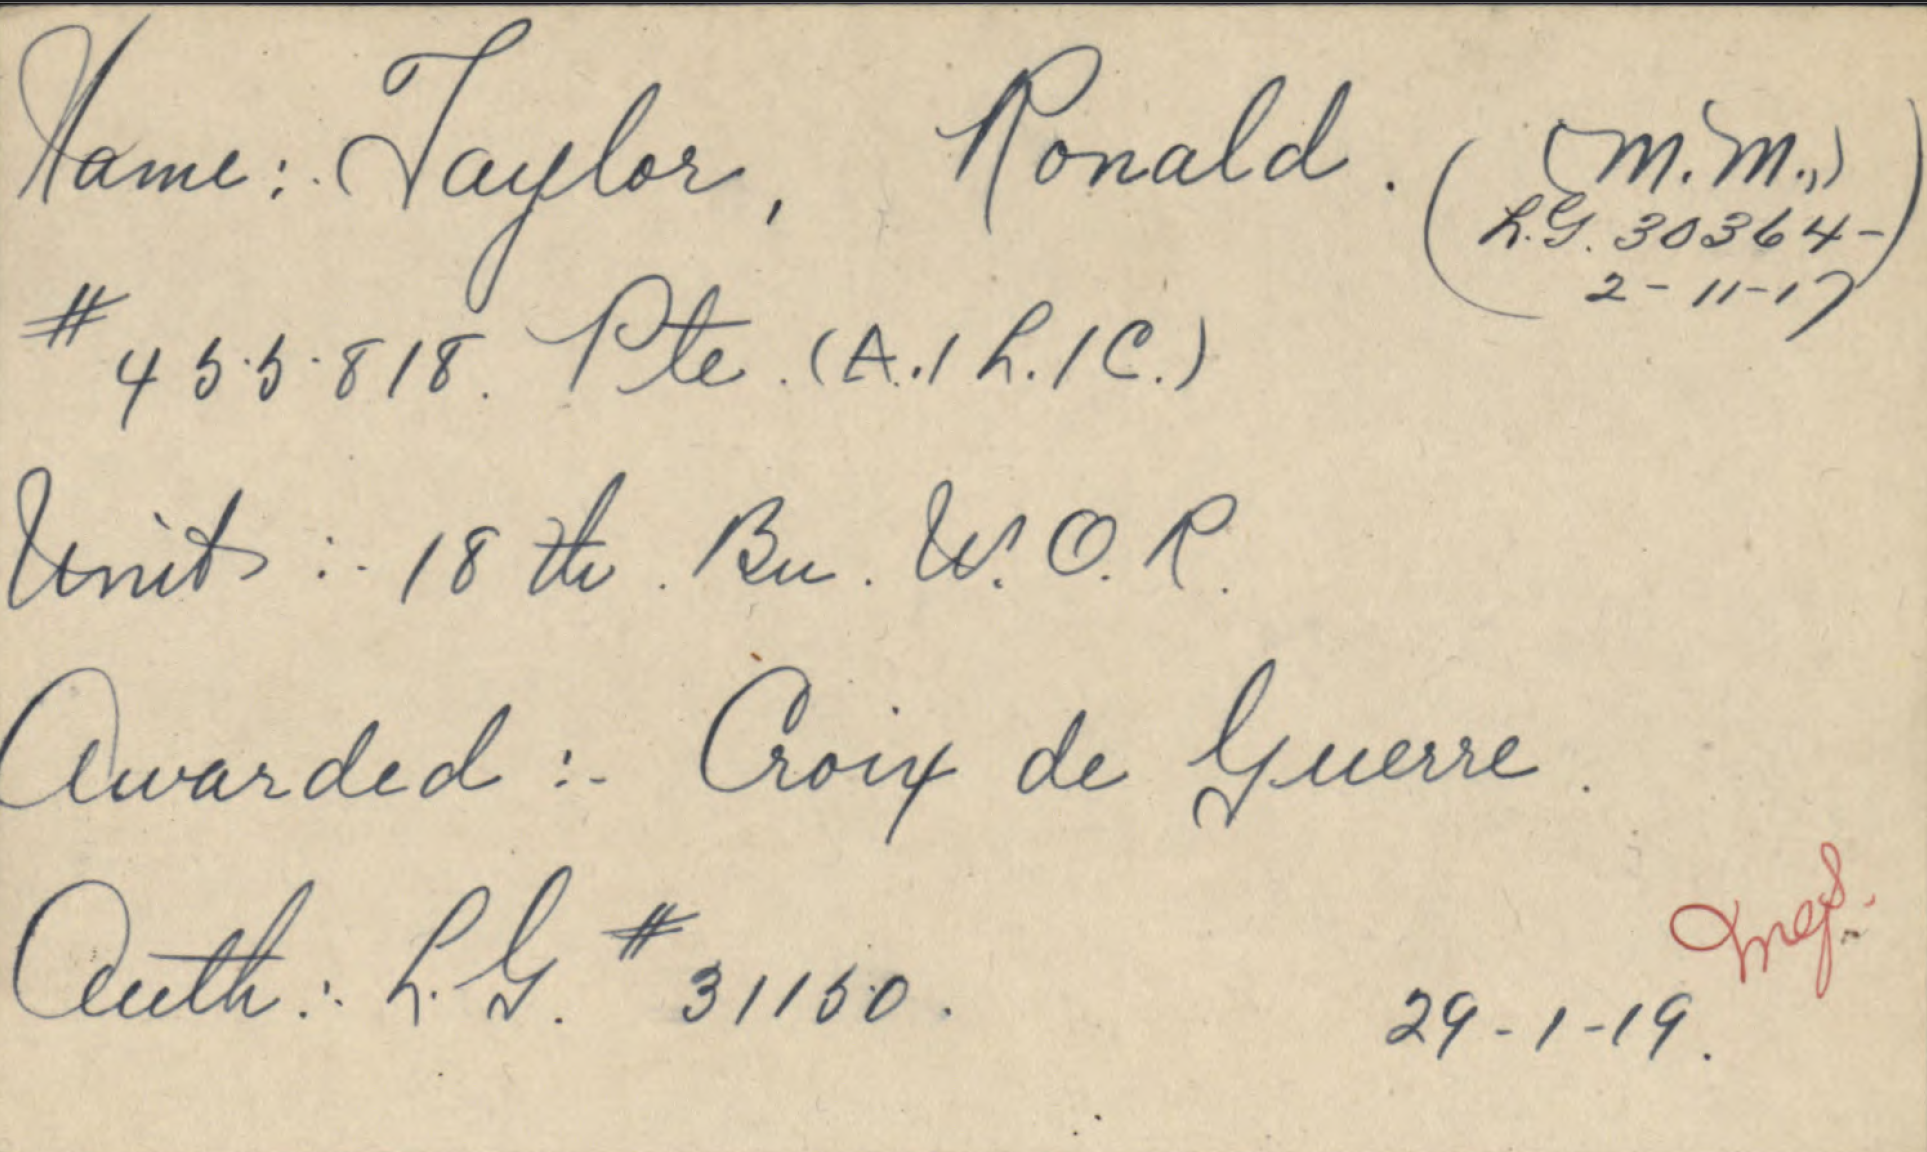 Name:. Taylor, Ronald. (M.M.,)
(L.G. 30364-
2-11-17)
# 455818. Pte. (A./L./C.)
Unit :. 18th. Bn. W.O.R.
Awarded :- Croix de Guerre.
Auth:. L.G. # 31150. 29-1-19.